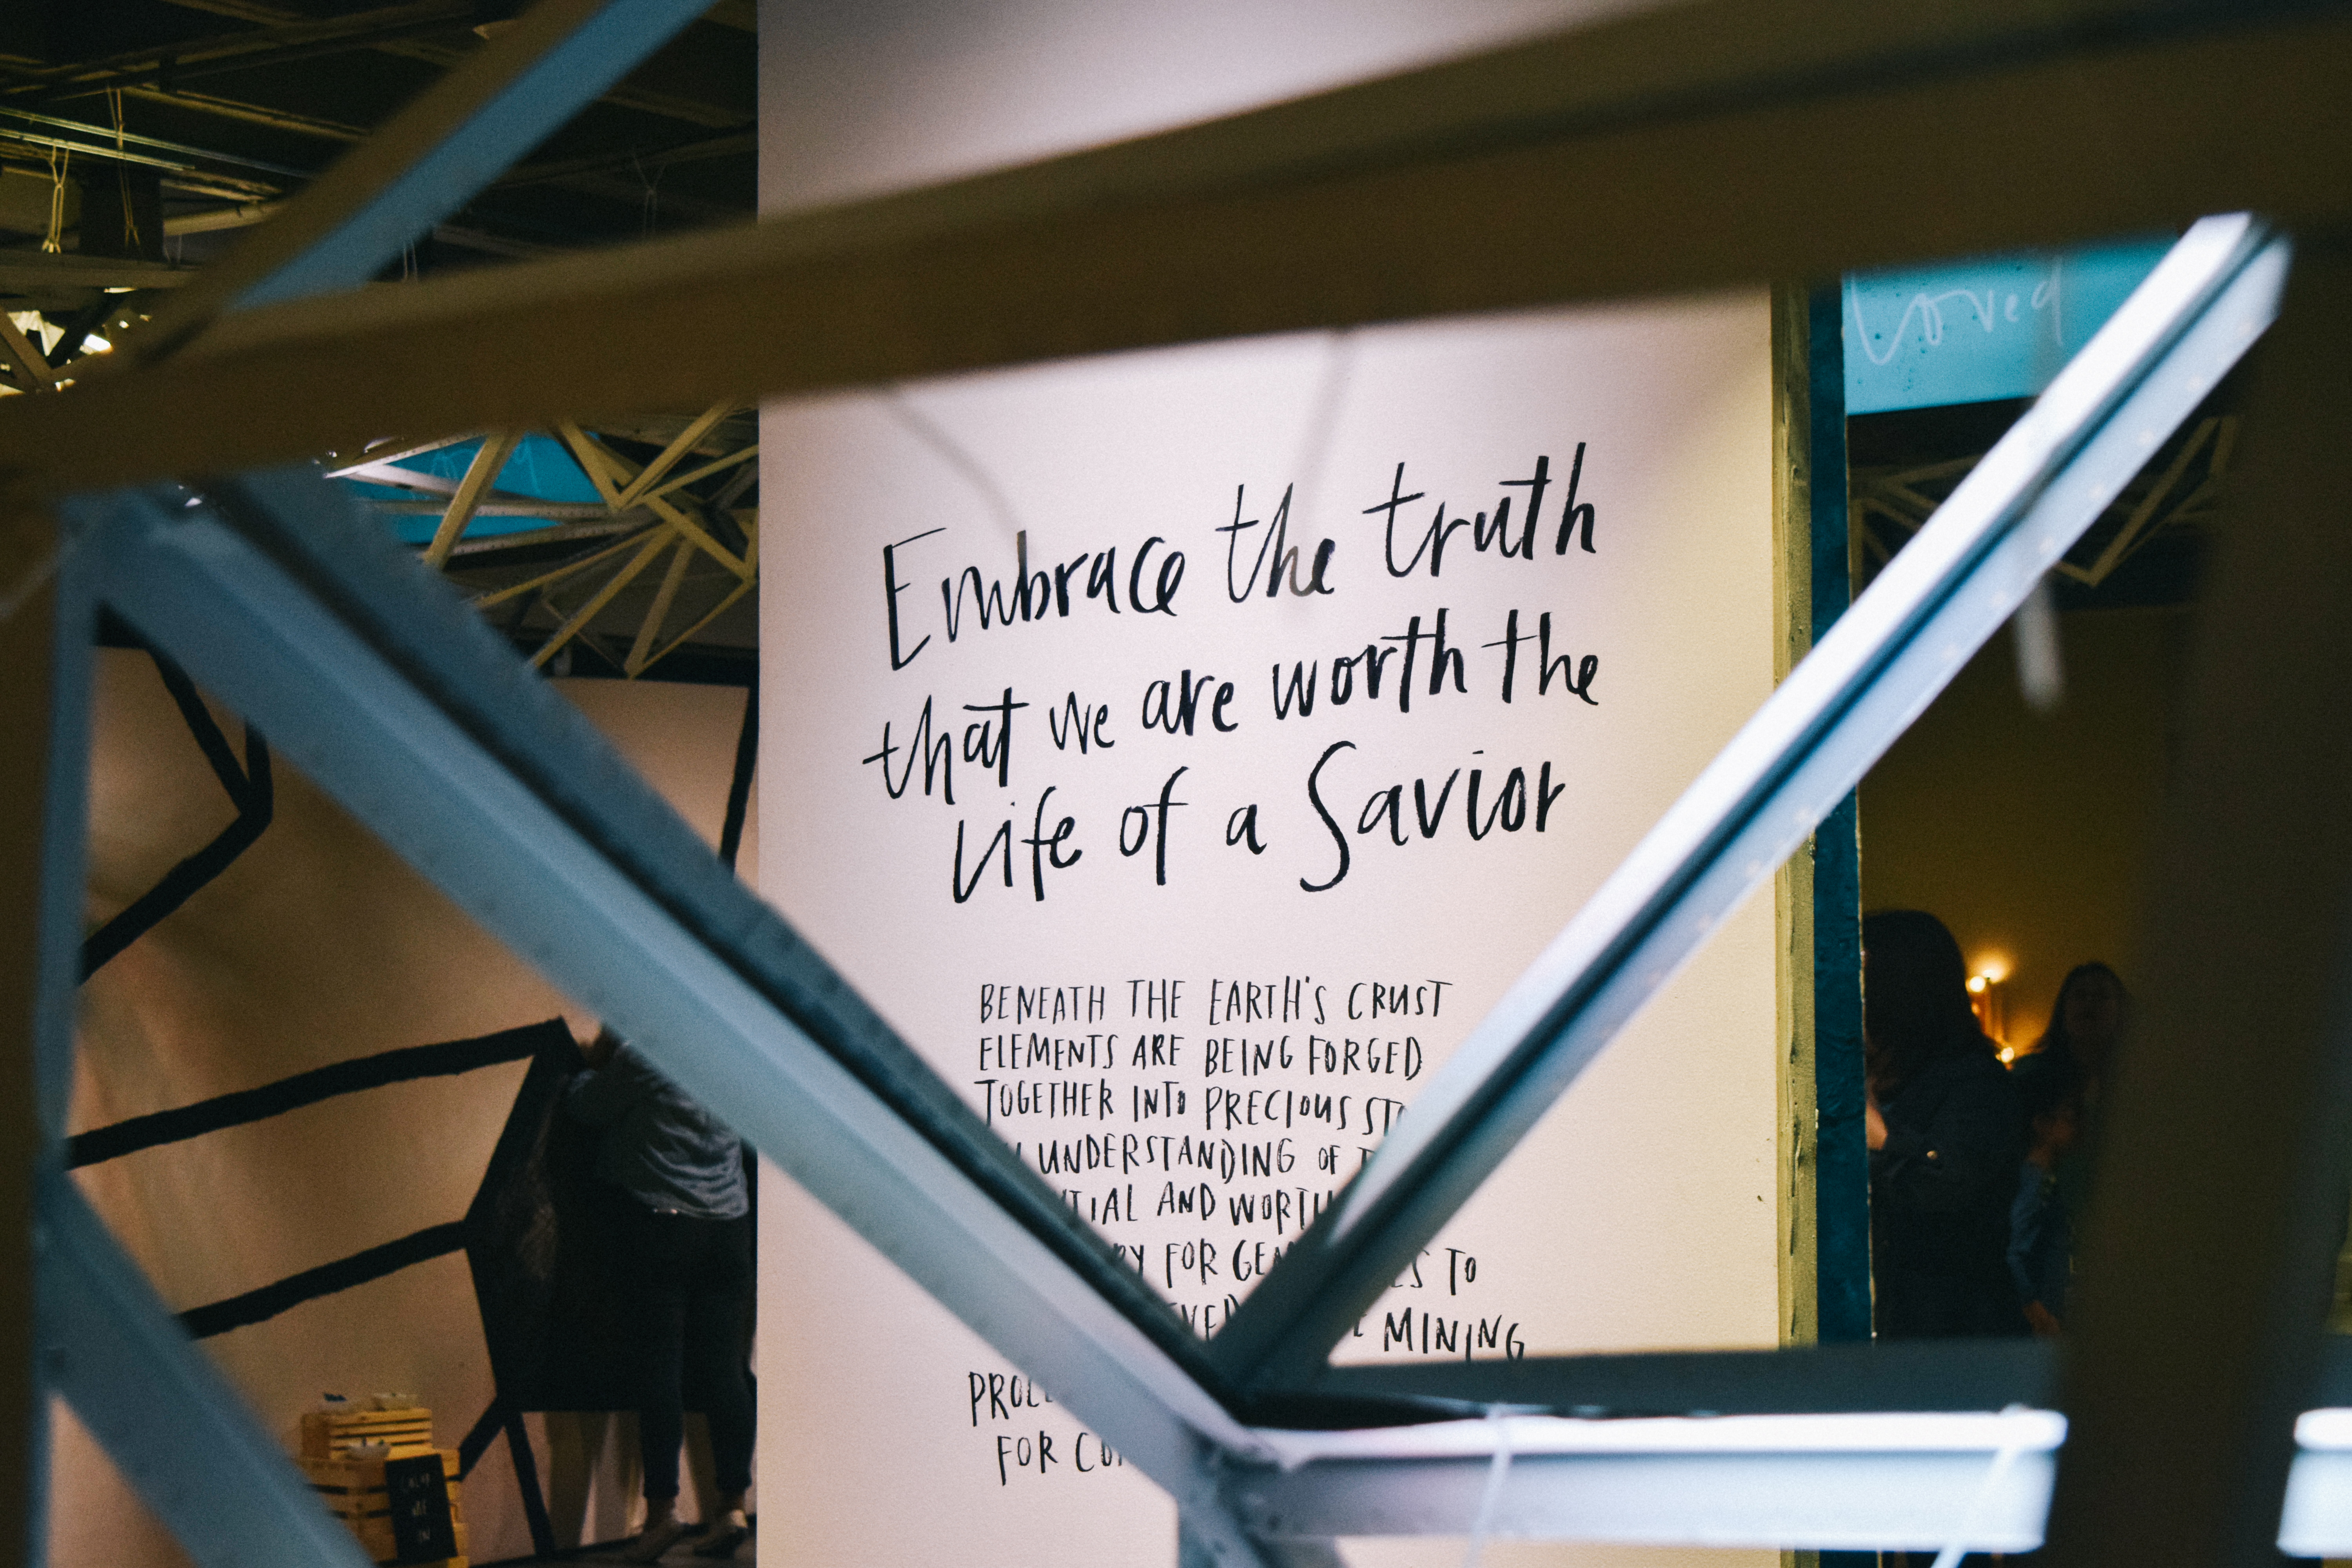 Loved
Embrace the truth
that we are worth the
life of a Savior
BENEATH THE EARTH'S CRUST
ELEMENTS ARE BEING FORGED
TOGETHER INTO PRECIOUS
UNDERSTANDING OF
AND WORTH
FOR TO
MINING
FOR